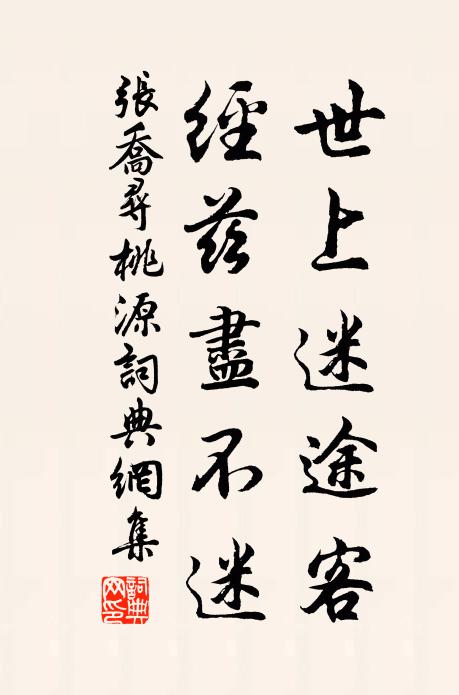 世上迷途客
經茲盡不迷
張喬尋桃源詞典網集
詞典网印